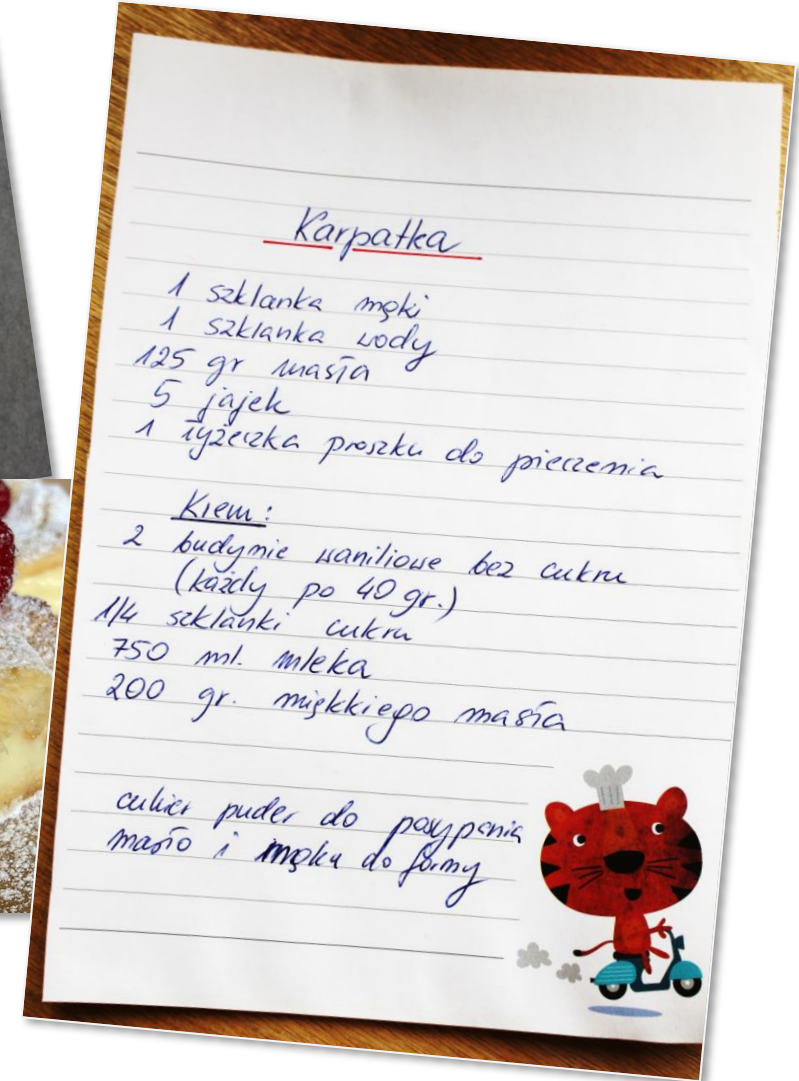 Karpatka
1 szklanka mąki
1 szklanka wody
125 gr masła
5 jajek
1 łyżeczka proszku do pieczenia
Krem:
2 budynie waniliowe bez cukru
(każdy po 40 gr.)
1/4 szklanki cukru
750 ml. mleka
200 gr. miękkiego masła
cukier puder do posypania
masło i mąka do formy